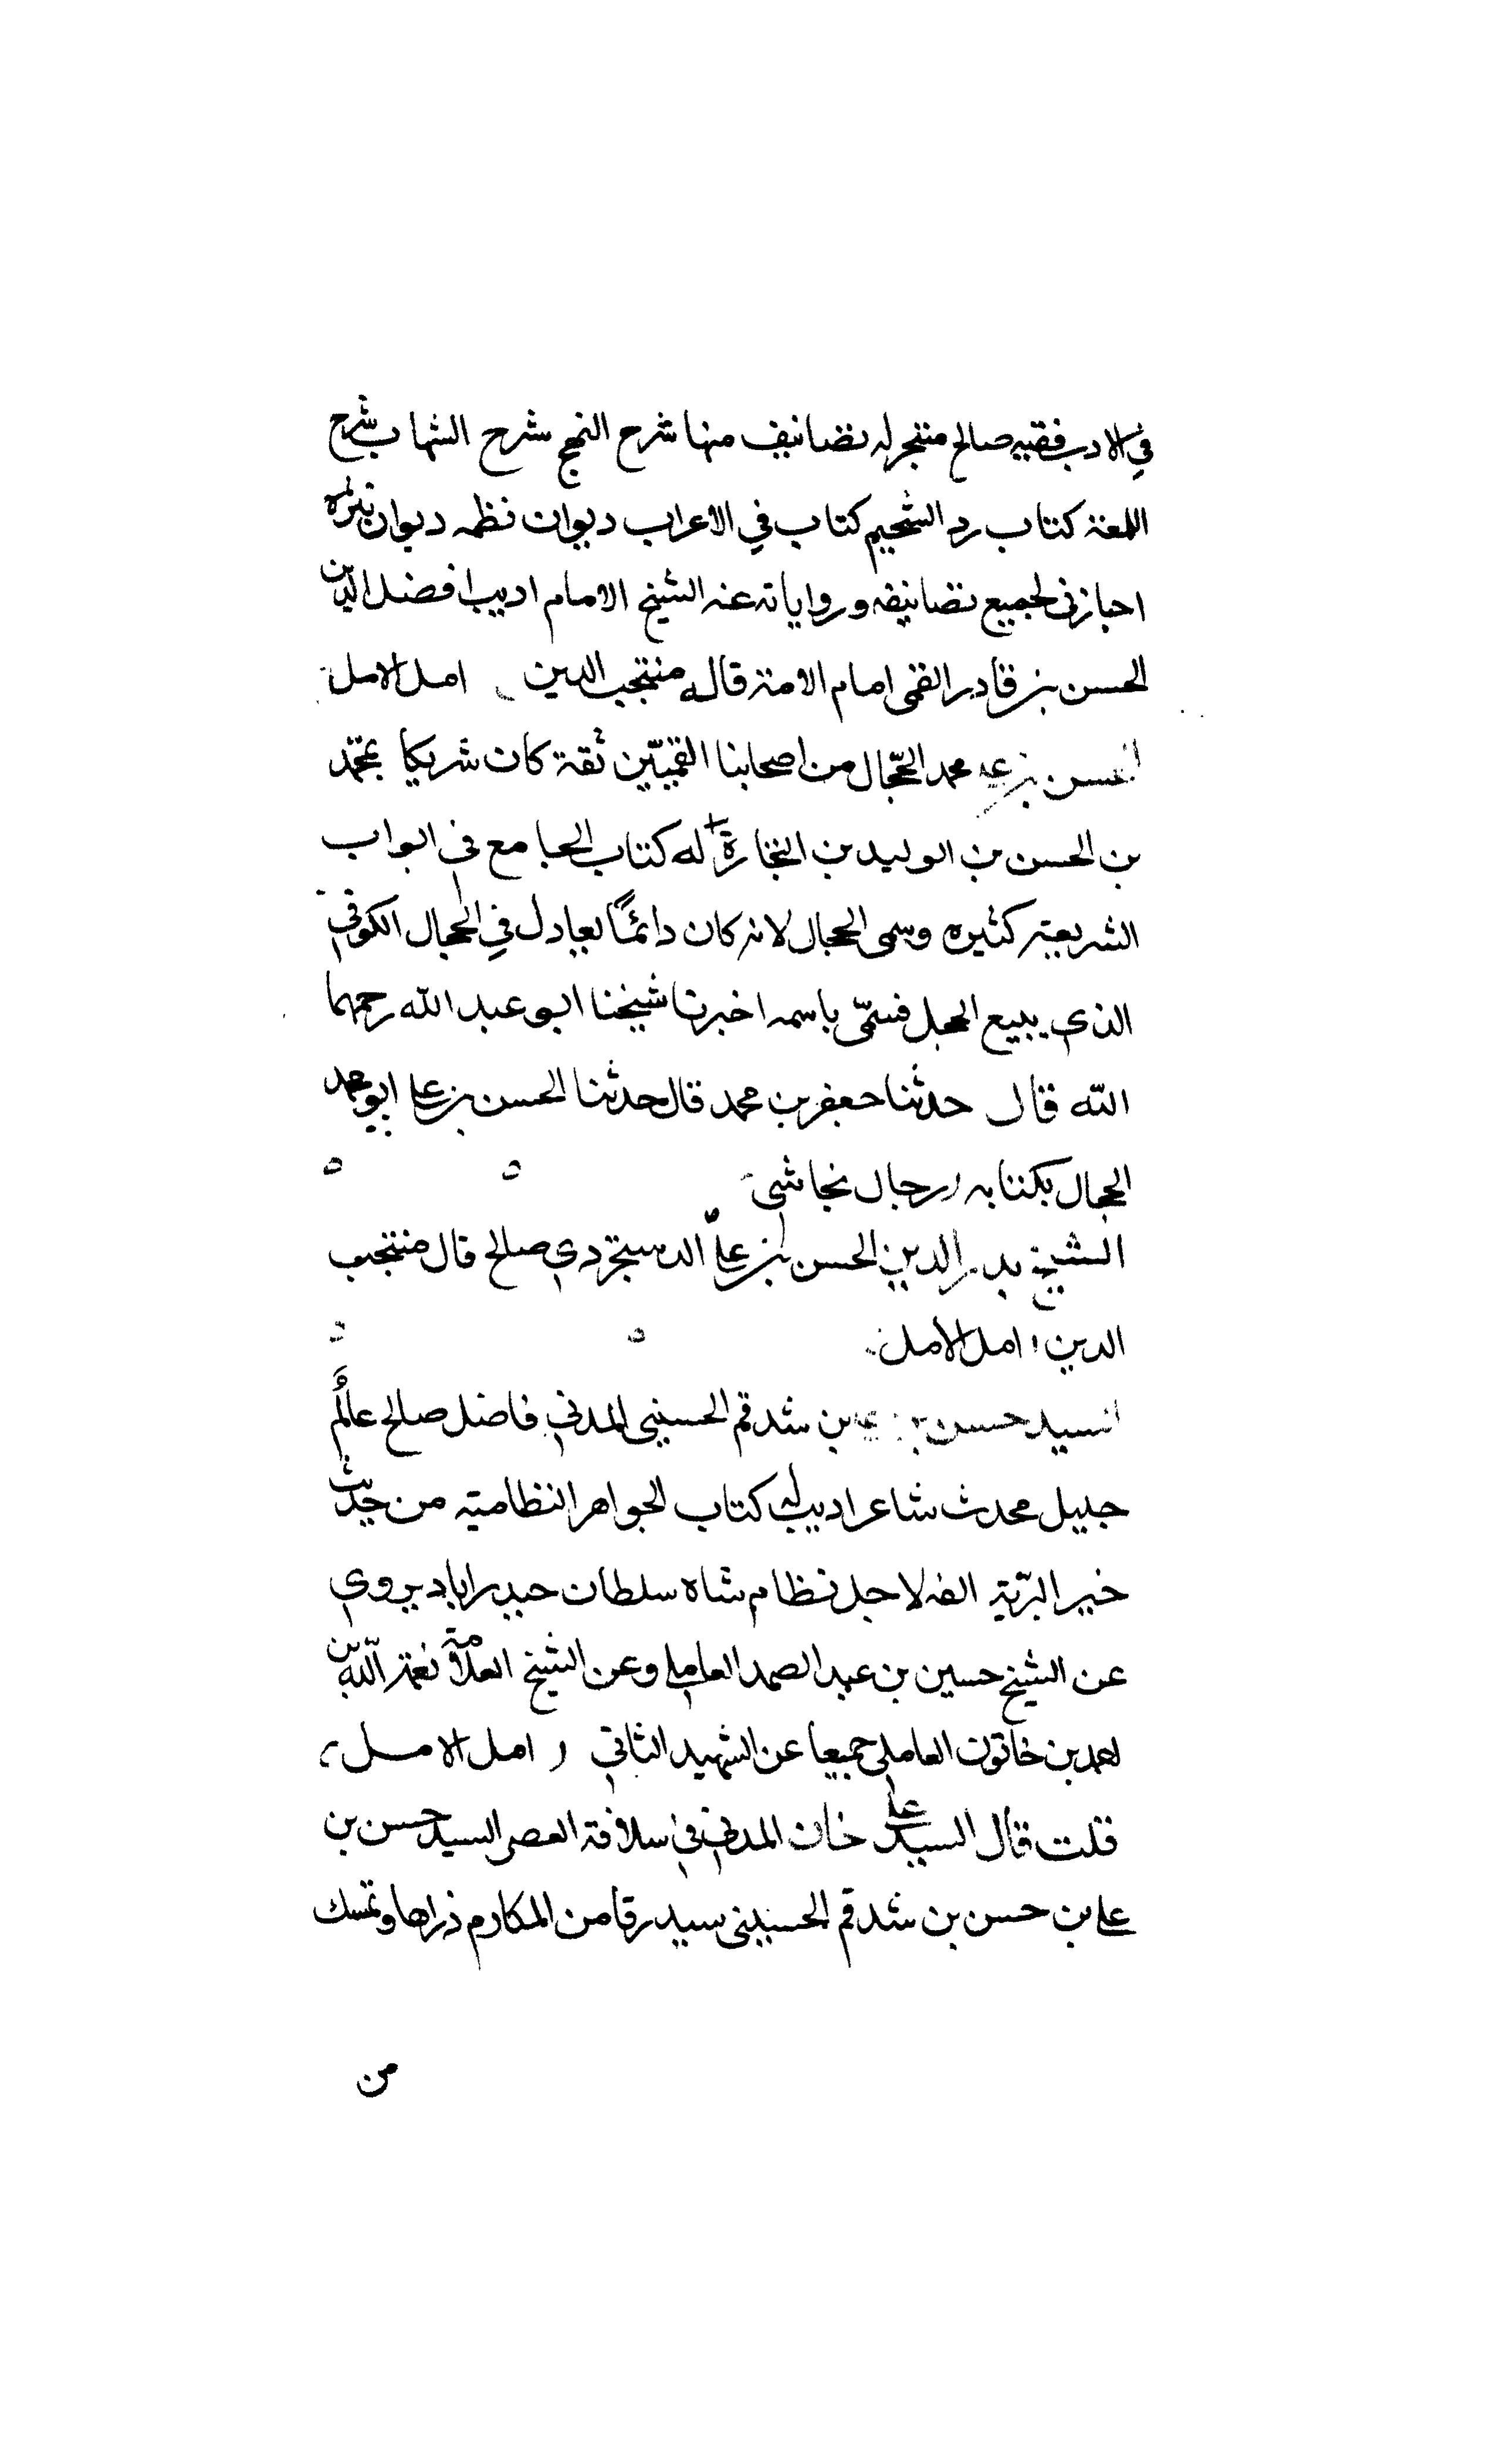 في الادب فقيه صالح متبحر له تصانيف منها شرح النهج شرح الشهاب شرح
اللمعة كتاب رد التنجيم كتاب في الاعراب ديوان نظمه ديوان نثره
اجازني لجميع تصانيفه ورواياته عنه الشيخ الامام اديب افضل الدين
الحسن بن قادر القمى امام الامة قاله منتجب الدين امل الامل
الحسن بن على محمد الحجّال من اصحابنا القميّين ثقة كان شريكا بمحمّد
بن الحسن بن الوليد بن التجارة له كتاب الجامع فى ابواب
الشريعة كثيره وسمى الحجال لانه كان دائمًا يعادل في الحجال الكوفي
الذي يبيع الحجل فسمّى باسمه اخبرنا شيخنا ابو عبد الله رحمهما
الله قال حدثنا جعفر بن محمد قال حدثنا الحسن بن على ابو محمد
الحجال بكتابه رجال نجاشى
الشيخ بدر الدين الحسن بن علىّ الدستجردي صالح قال منتجب
الدين امل الامل
السيد حسن بن على بن شدقم الحسينى المدني فاضل صالح عالم
جليل محدث شاعر اديب له كتاب الجواهر النظاميه من حديث
خير البريّة الفه لاجل نظام شاه سلطان حيدراباد يروي
عن الشيخ حسين بن عبد الصمد العاملي وعن الشيخ العلامة نعمة الله بن
احمد بن خاتون العاملي جميعا عن الشهيد الثاني امل الامل
قلت قال السيد على خان المدني في سلافة العصر السيد حسن بن
على بن حسن بن شدقم الحسينى سيد رقا من المكارم ذراها وتمسك
من